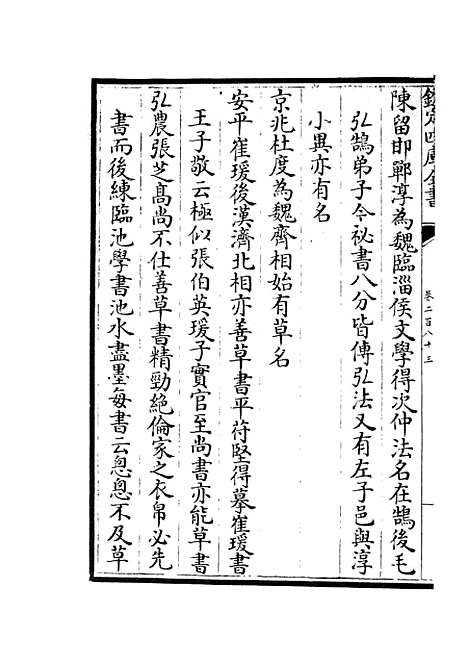 欽定四庫全書
卷二百八十三
陳留邯鄲淳為魏臨淄侯文學得次仲法名在鵠後毛
弘鵠弟子今祕書八分皆傳弘法又有左子邑與淳
小異亦有名
京兆杜度為魏齊相始有草名
安平崔瑗後漢濟北相亦善草書平苻堅得摹崔瑗書
王子敬云極似張伯英瑗子實官至尚書亦能草書
弘農張芝髙尚不仕善草書精勁絶倫家之衣帛必先
書而後練臨池學書池水盡墨每書云怱怱不及草